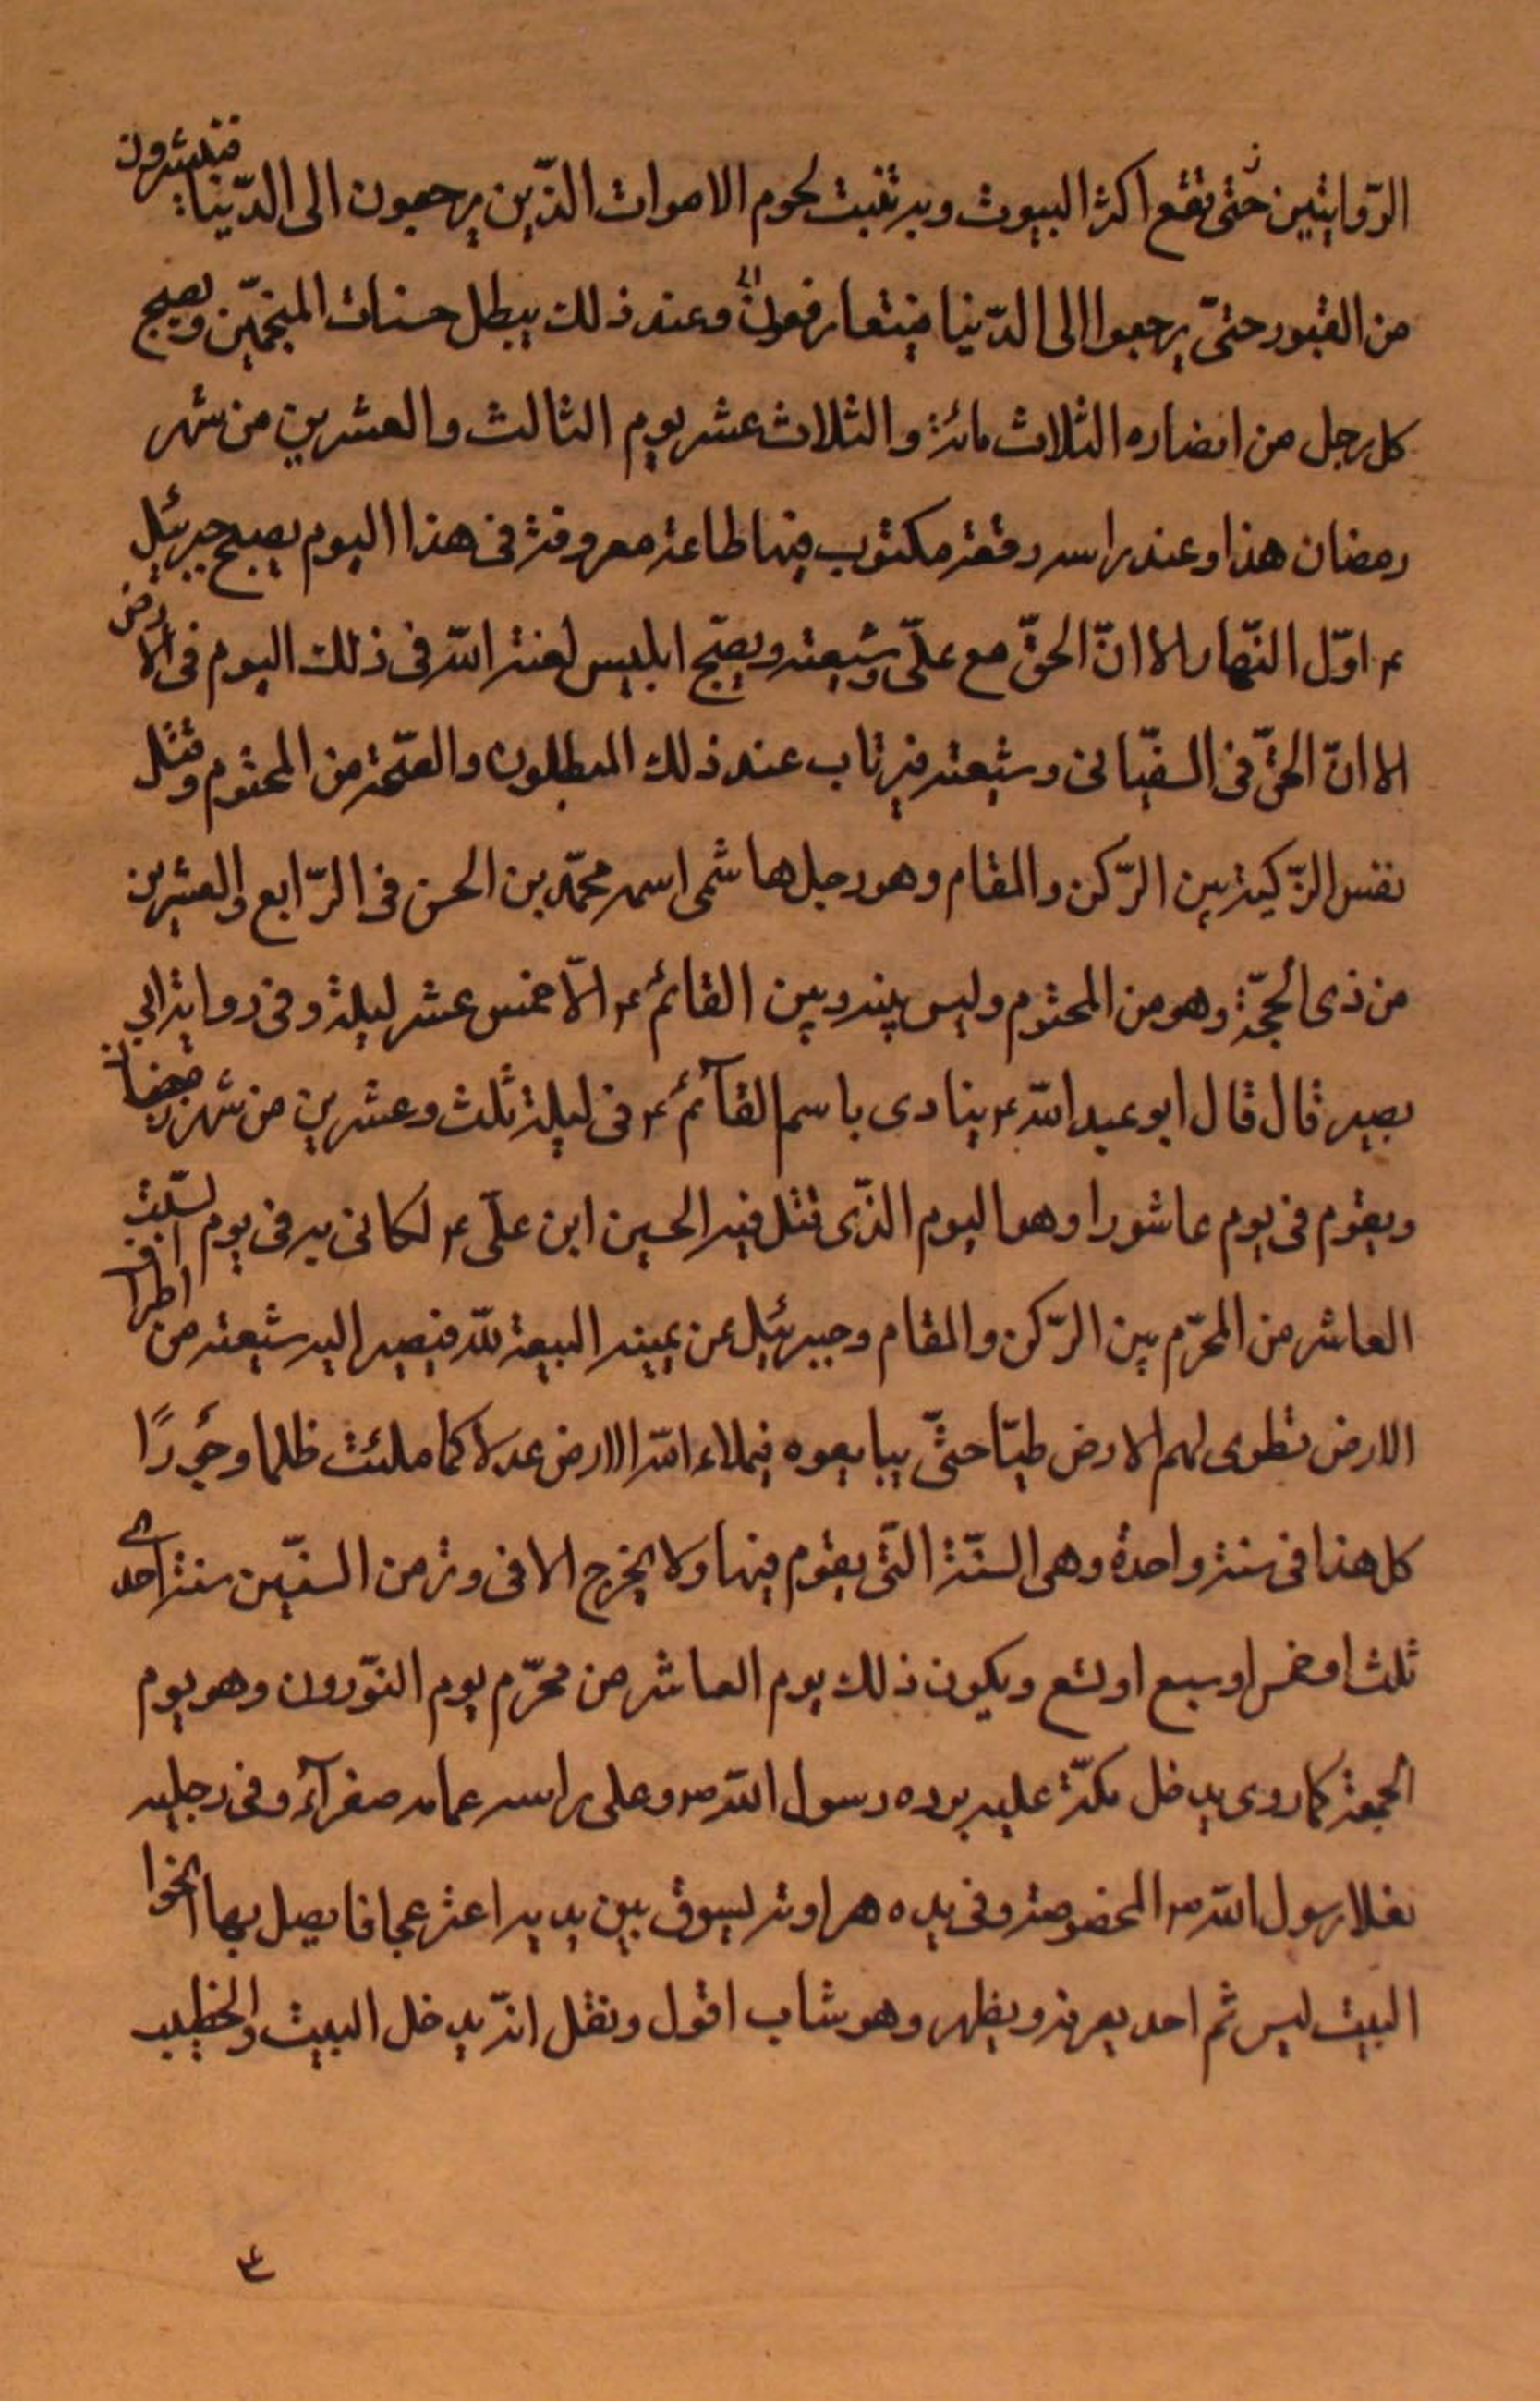 الرّوايتين حتى تقع اكثر البيوت وبه تنبت لحوم الاموات الذّين يرجعون الى الدّنيا فينشرون
من القبور حتّى يرجعوا الى الدّنيا فيتعارفون وعند ذلك يبطل حسنات المنجّمين ويصبح
كل رجل من انصاره الثلاث مائة والثلاث عشر يوم الثالث والعشرين من شهر
رمضان هذا وعند راسه رقعة مكتوب فيها طاعة معروفة فى هذا اليوم يصبح جبرئيل
ع اوّل النّهار الا انّ الحقّ مع علىّ وشيعته ويصيح ابليس لعنة اللّه فى ذلك اليوم فى الارض
الا انّ الحقّ فى السفيّانى وشيعته فيرتاب عند ذلك المبطلون والصّيحة من المحتوم وقتل
نفس الزّكية بين الرّكن والمقام وهو رجل هاشمى اسمه محمّد بن الحسن فى الرّابع والعشرين
من ذى الحجّة وهو من المحتوم وليس بينه وبين القائم ع الّا خمس عشر ليلة وفى رواية ابى
بصير قال قال ابو عبد اللّه ع ينادى باسم القآئم ع فى ليلة ثلث وعشرين من شهر رمضان
ويقوم فى يوم عاشورا وهو اليوم الذّى قتل فيه الحسين ابن علىّ ع لكانى به فى يوم السّبت
العاشر من المحرّم بين الرّكن والمقام وجبرئيل عن يمينه البيعة للّه فيصير اليه شيعته من اطراف
الارض تطوى لهم الارض طيّا حتّى يبايعوه فيملاء اللّه الارض عدلا كما ملئت ظلما وجَورًا
كل هذا فى سنة واحدة وهى السنّة التّى يقوم فيها ولا يخرج الا فى وتر من السنين سنة احدى
ثلث او خمس او سبع او تسع ويكون ذلك يوم العاشر من محرّم يوم النّوروز وهو يوم
الجمعة كما روى يدخل مكّة عليه برده رسول اللّه ص وعلى راسه عمامه صفرآء وفى رجليه
نعلا رسول اللّه ص المخصوصة وفى يده هراوته ليسوق بين يديه اعنز عجافا يصل بها نحوا
البيت ليس ثم احد يعرفه ويظهر وهو شاب اقول ونقل انّه يدخل البيت والخطيب
٤